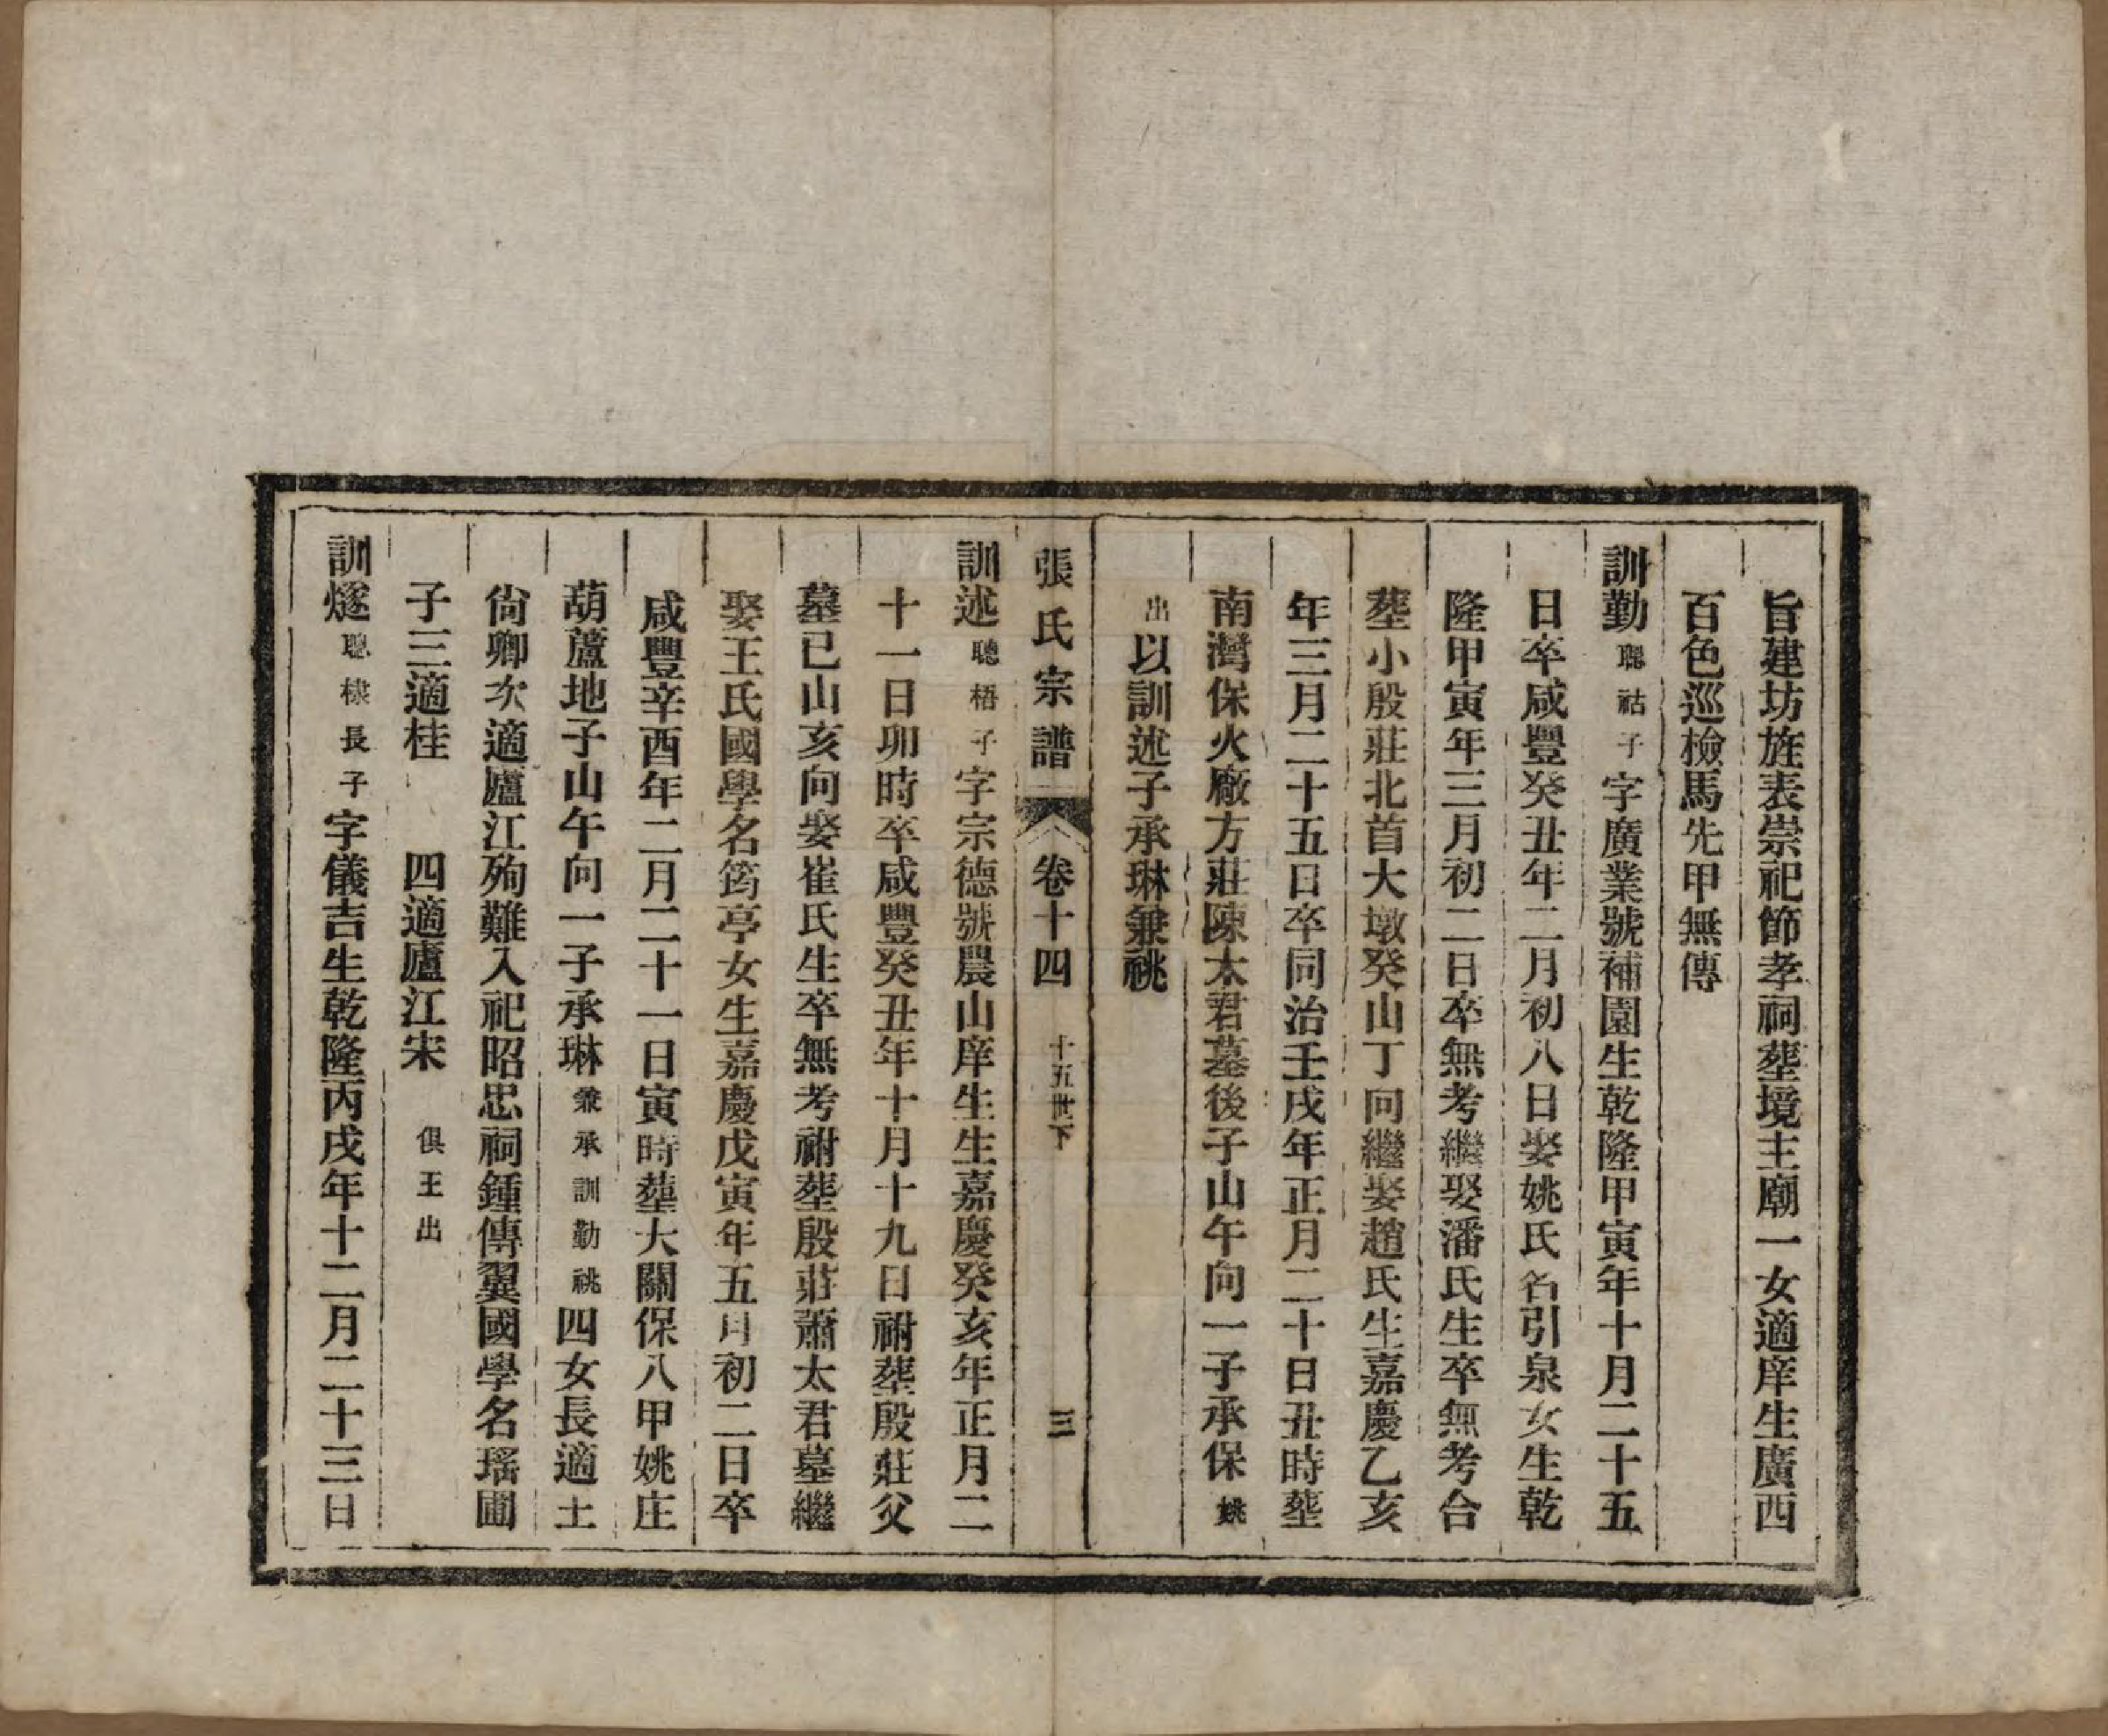 旨建坊旌表崇祀節孝祠葬境主廟一女適庠生廣西
百色巡檢馬先甲無傳
訓勤聰祜子字廣業號補園生乾隆甲寅年十月二十五
日卒咸豐癸丑年二月初八日娶姚氏名引泉女生乾
隆甲寅年三月初二日卒無考繼娶潘氏生卒無考合
葬小殷莊北首大墩癸山丁向繼娶趙氏生嘉慶乙亥
年三月二十五日卒同治壬戌年正月二十日丑時葬
南灣保火廠方莊陳太君墓後子山午向一子承保姚
出以訓述子承琳兼祧
張氏宗譜 卷十四 十五世下 三
訓述聰梧子字宗德號農山庠生生嘉慶癸亥年正月二
十一日卯時卒咸豐癸丑年十月十九日祔葬殷莊父
墓巳山亥向娶崔氏生卒無考祔葬殷莊蕭太君墓繼
娶王氏國學名筠亭女生嘉慶戊寅年五月初二日卒
咸豐辛酉年二月二十一日寅時葬大關保八甲姚庄
葫蘆地子山午向一子承琳兼承訓勤祧四女長適土
尙卿次適廬江殉難入祀昭忠祠鍾傳翼國學名瑤圃
子三適桂 四適廬江宋 俱王出
訓燧聰棣長子字儀吉生乾隆丙戌年十二月二十三日